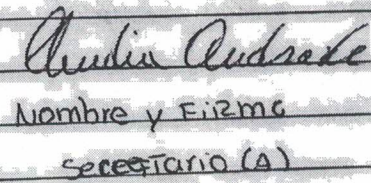 Claudia Andrade
Nombre y Fiirma
Secretario (A)